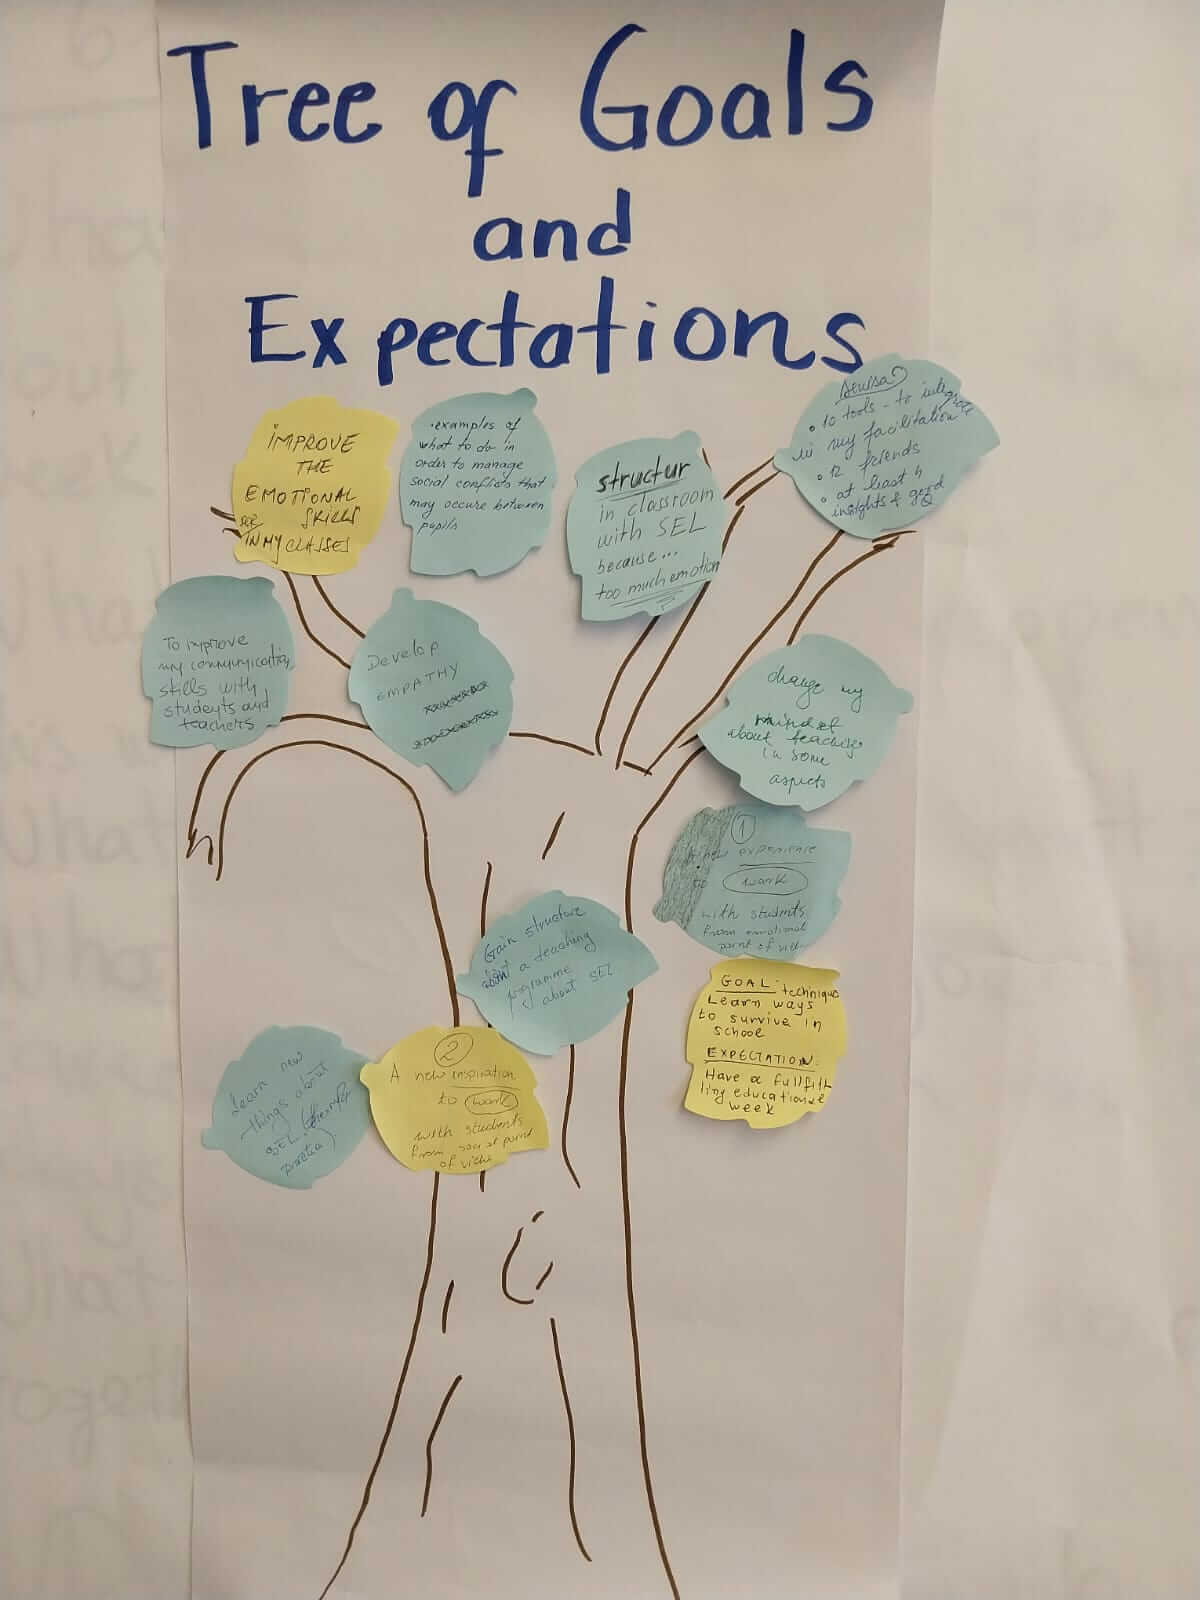 Tree of Goals
and
Expectations
IMPROVE
THE
EMOTIONAL
SKILLS
IN MY CLASSES
• examples of
what to do in
order to manage
social conflicts that
may occure between
pupils
structur
in classroom
with SEL
because...
too much emotion
• 10 tools - to integrate
in my facilitation
• 12 friends
• at least 4
insights of good
To improve
my communication
skills with
students and
teachers
Develop
EMPATHY
change my
mindset
about teaching
in some
aspects
1
new experience
to work
with students
from emotional
point of view
Gain structure
about a teaching
programme
about SEL
GOAL: techniques
Learn ways
to survive in
school
EXPECTATION:
Have a fullfith
ling educational
week
Learn new
things about
SEL
2
A new inspiration
to work
with students
from social point
of view